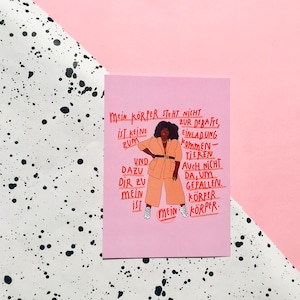 mein KÖRPER STEHT NICHT
ZUR DEBATTE,
IST KEINE EINLADUNG
ZUM KOMMEN-
TIEREN
UND AUCH NICHT
DAZU DA, UM
DIR ZU GEFALLEN.
MEIN KÖRPER
IST MEIN KÖRPER.